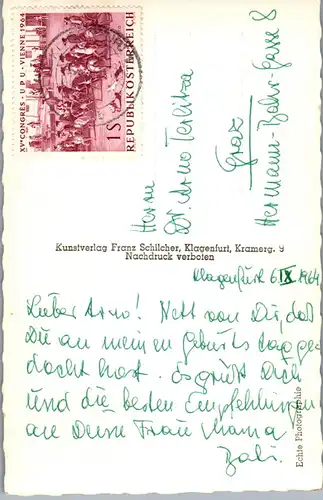 XVe CONGRÈS · UPU · VIENNE 1964
1 S
REPUBLIK ÖSTERREICH
Herrn
Dr. Arno Terlitza
Graz
Hermann-Bahr-Gasse 8
Kunstverlag Franz Schilcher, Klagenfurt, Kramerg. 9
Nachdruck verboten
Klagenfurt 6. IX 1964
Lieber Arno! Nett von Dir, daß
Du an meinen Geburtstag ge
dacht hast. Es grüßt Dich
und die besten Empfehlungen
an Deine Frau Mama
Echte Photographie